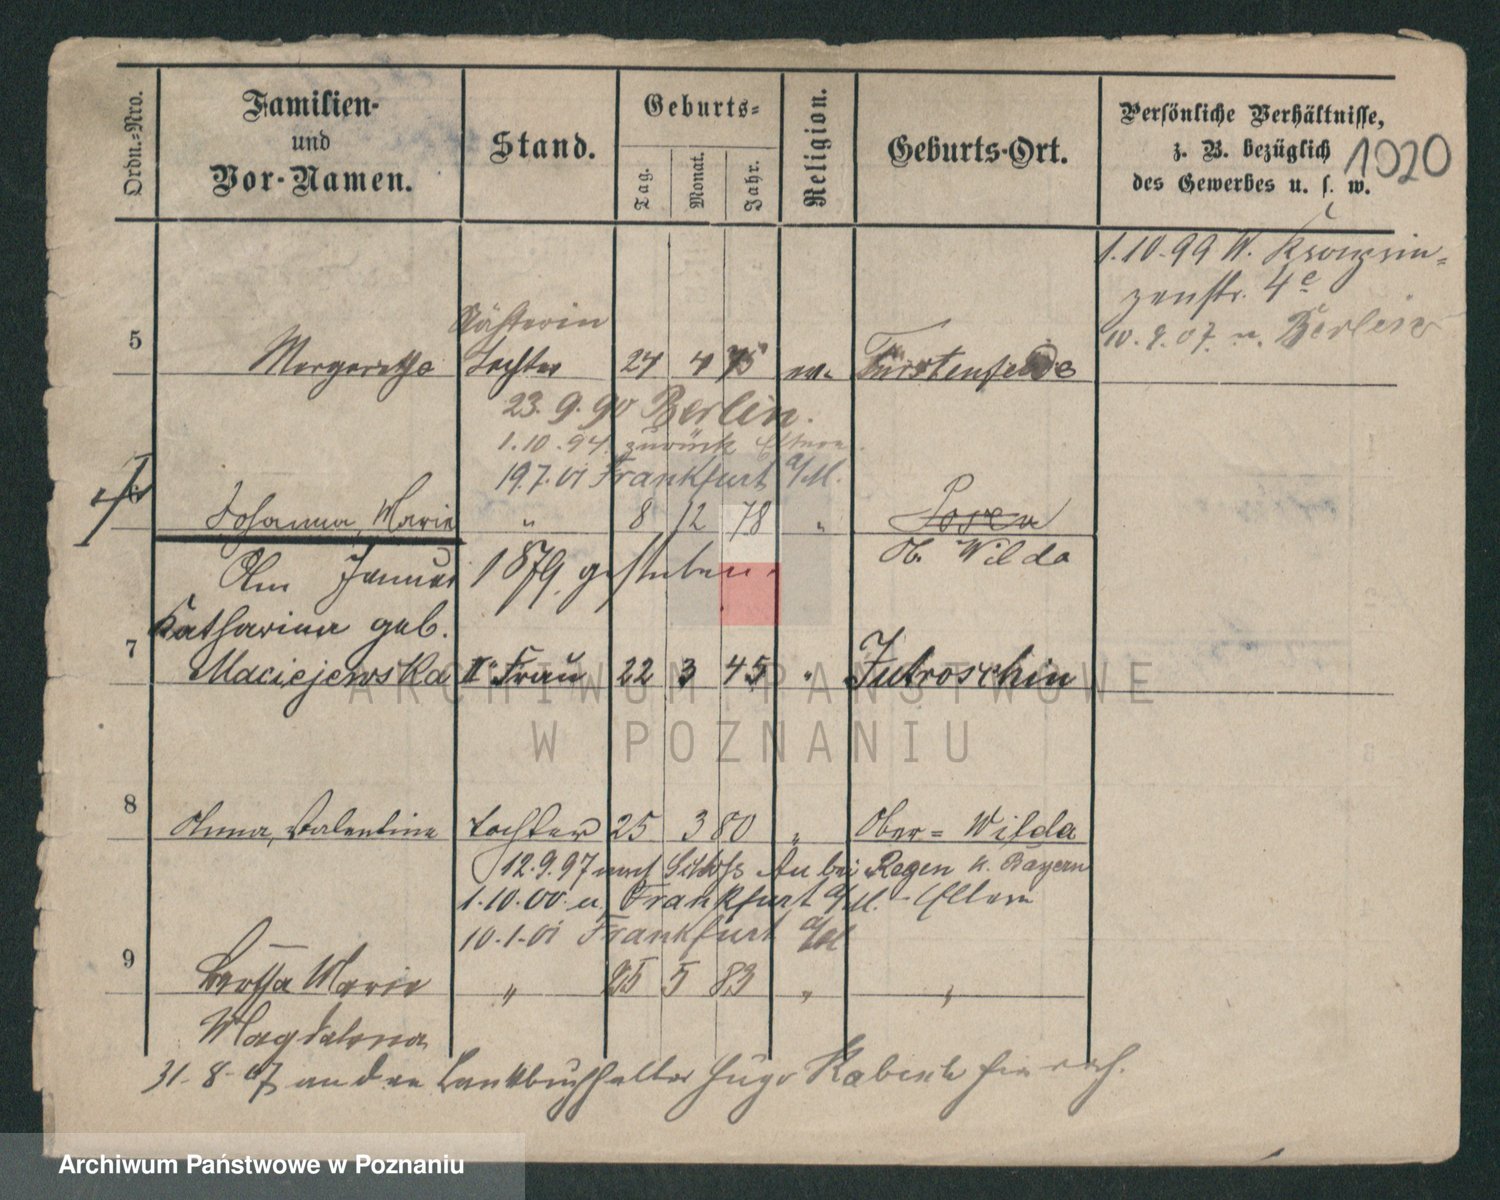 Ordn.-Nro.
Familien-
und
Vor-Namen.
Stand.
Geburts-
Tag.
Monat.
Jahr.
Religion.
Geburts-Ort.
Persönliche Verhältnisse,
z. B. bezüglich
des Gewerbes u. s. w.
1020
1.10.99 W. Kronprin-
zenstr. 4e
10.8.07. n. Berlin
5 Margarethe Tochter 24 4 75 ev. Fürstenfelde
23.9.90 Berlin.
1.10.94 zurück Eltern
19.7.01 Frankfurt a/M.
6 Johanna, Marie " 8 12 78 " Posen
Ob. Wilda
Am Januar 1879 gestorben.
Katharina geb.
7 Maciejewska II Frau 22 3 45 " Jutroschin
8 Anna, Valentine Tochter 25 3 80 " Ober-Wilda
12.9.97 nach Schloß Au bei Regen n. Bayern
1.10.00 n. Frankfurt a/M. - Eltern
10.1.01 Frankfurt a/M
9 Bertha Marie " 25 5 83 " "
Magdalena
31-8-07 an den Bankbuchhalter Hugo
ARCHIWUM PAŃSTWOWE
W POZNANIU
Archiwum Państwowe w Poznaniu